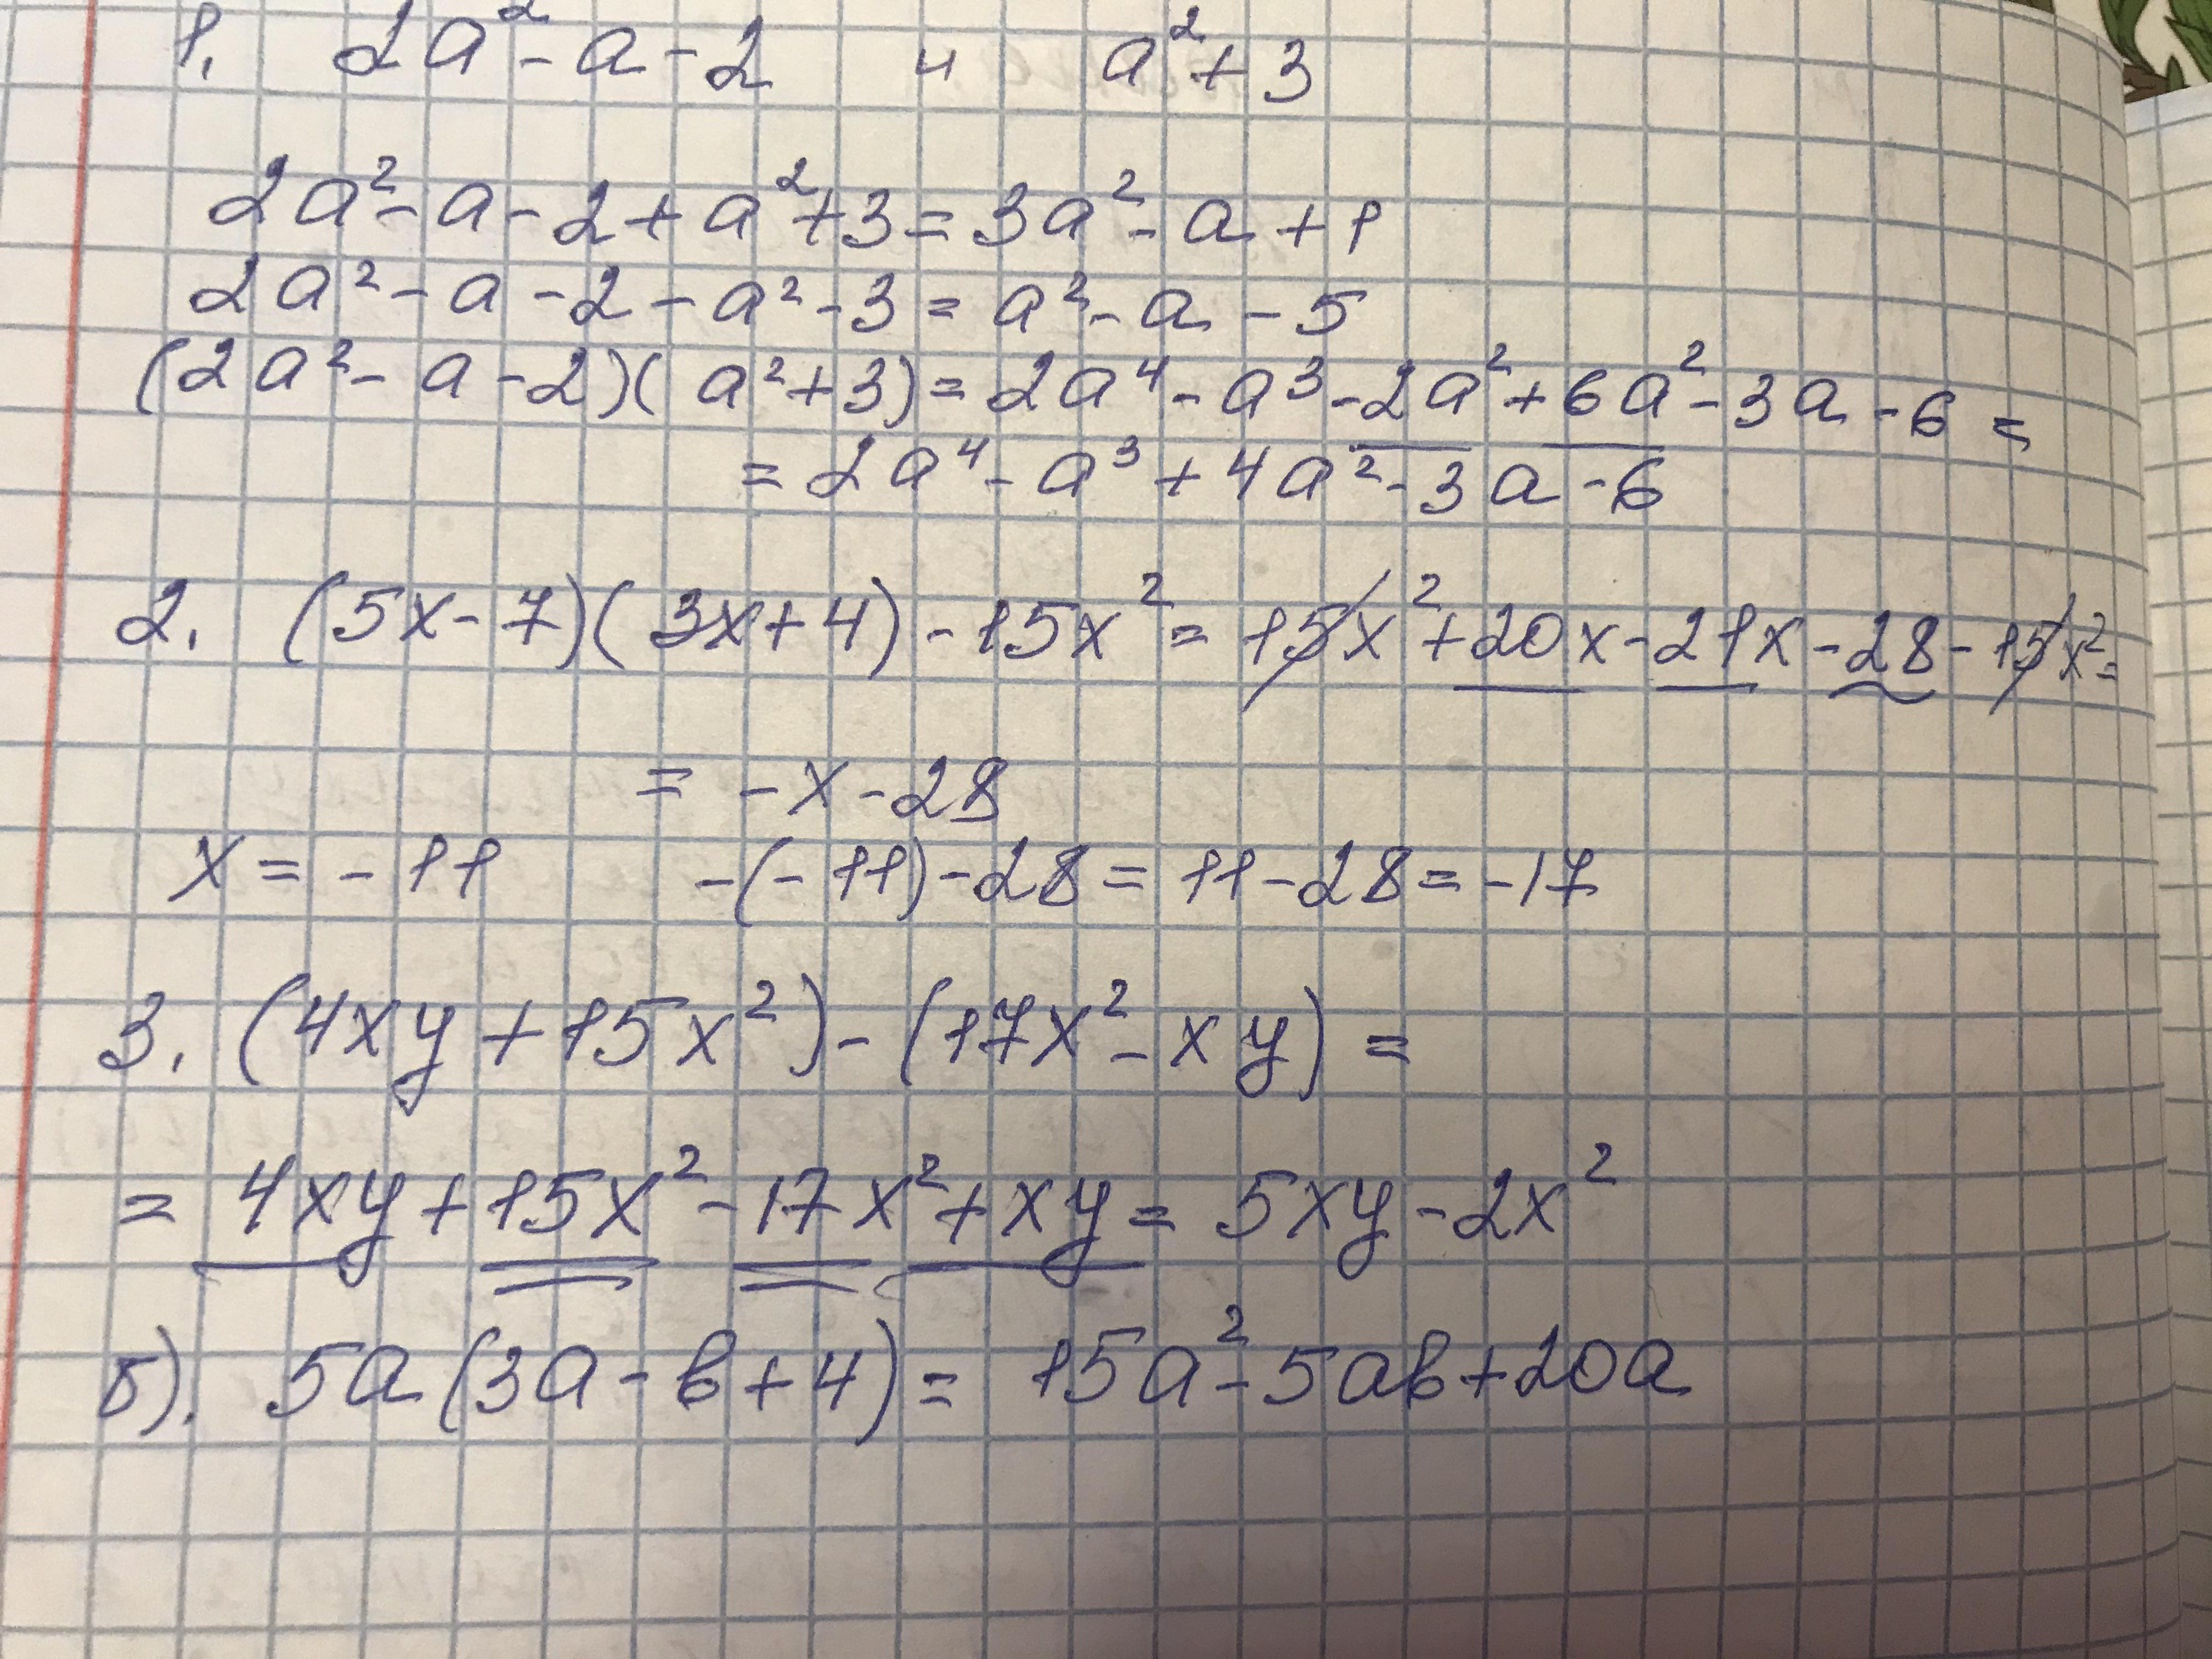 1. 2a² - a - 2 и a² + 3
2a² - a - 2 + a² + 3 = 3a² - a + 1
2a² - a - 2 - a² - 3 = a² - a - 5
(2a² - a - 2)(a² + 3) = 2a⁴ - a³ - 2a² + 6a² - 3a - 6 =
= 2a⁴ - a³ + 4a² - 3a - 6
2. (5x - 7)(3x + 4) - 15x² = 15x² + 20x - 21x - 28 - 15x² =
= -x - 28
x = -11 -(-11) - 28 = 11 - 28 = -17
3. (4xy + 15x²) - (17x² - xy) =
= 4xy + 15x² - 17x² + xy = 5xy - 2x²
б). 5a(3a - b + 4) = 15a² - 5ab + 20a